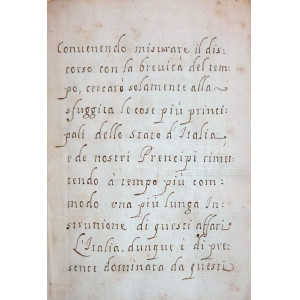 Conuenendo misurare il dis:
corso con la breuità del tem:
po, cercarò solamente alla
sfuggita le cose più princi:
pali dello Stato d'Italia
e de nostri Prencipi rimet
tendo à tempo più com:
modo una più lunga In:
strutione di questi affari
L'Italia, dunque è di pre:
sente dominata da questi